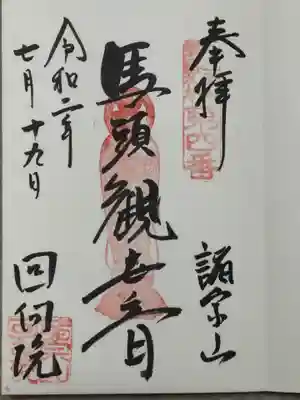 奉拝
諸宗山
馬頭観世音
令和二年
七月十九日
回向院